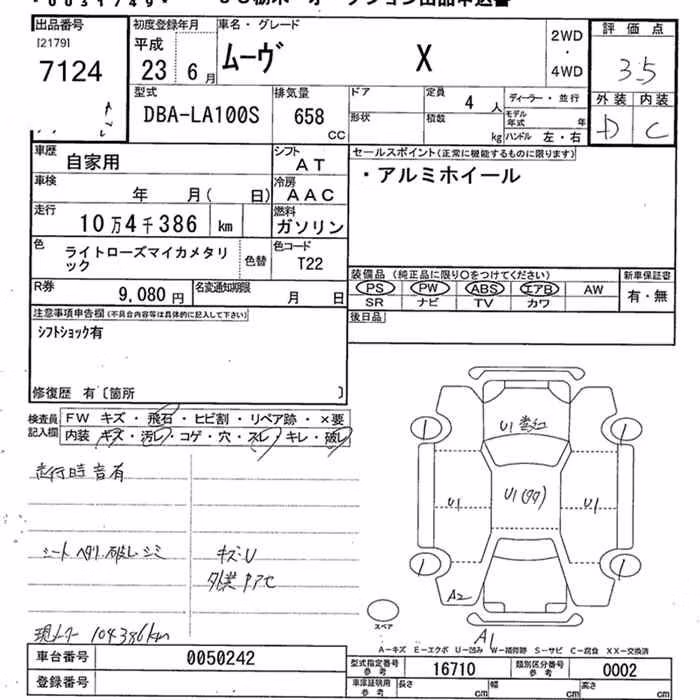 出品番号 初度登録年月 車名・グレード 評価点
[2179] 平成 2WD
7124 23 6月 ムーヴ X ・ 3.5
4WD
外装 内装
D C
型式 排気量 ドア 定員 ディーラー・並行
DBA-LA100S 658 CC 4人
形状 積載 kg モデル年式 年
ハンドル 左・右
車歴 自家用 シフト AT セールスポイント(正常に機能するものに限ります)
車検 年 月( 日) 冷房 AAC ・アルミホイール
走行 10万4千386 km 燃料 ガソリン
色 ライトローズマイカメタリック 色替 色コード T22
装備品 (純正品に限り○をつけてください) 新車保証書
R券 9,080円 名変通知期限 月 日
PS PW ABS エアB AW 有・無
SR ナビ TV カワ
注意事項申告欄(不具合内容等は具体的に記入して下さい) 後日品
シフトショック有
修復歴 有〔箇所 〕
検査員記入欄 FW キズ・飛石・ヒビ割・リペア跡・×要
内装・キズ・汚レ・コゲ・穴・スレ・キレ・破レ
走行時音有
シート ヘタリ 破レ シミ キズ・U
現メーター 104,386km
U1
U1
U1
A2
A1
スペア
A-キズ E-エクボ U-凹み W-補修跡 S-サビ C-腐食 XX-交換済
車台番号 0050242 型式指定番号 参考 16710 類別区分番号 参考 0002
登録番号 車庫証明用 参考 長さ cm 幅 cm 高さ cm